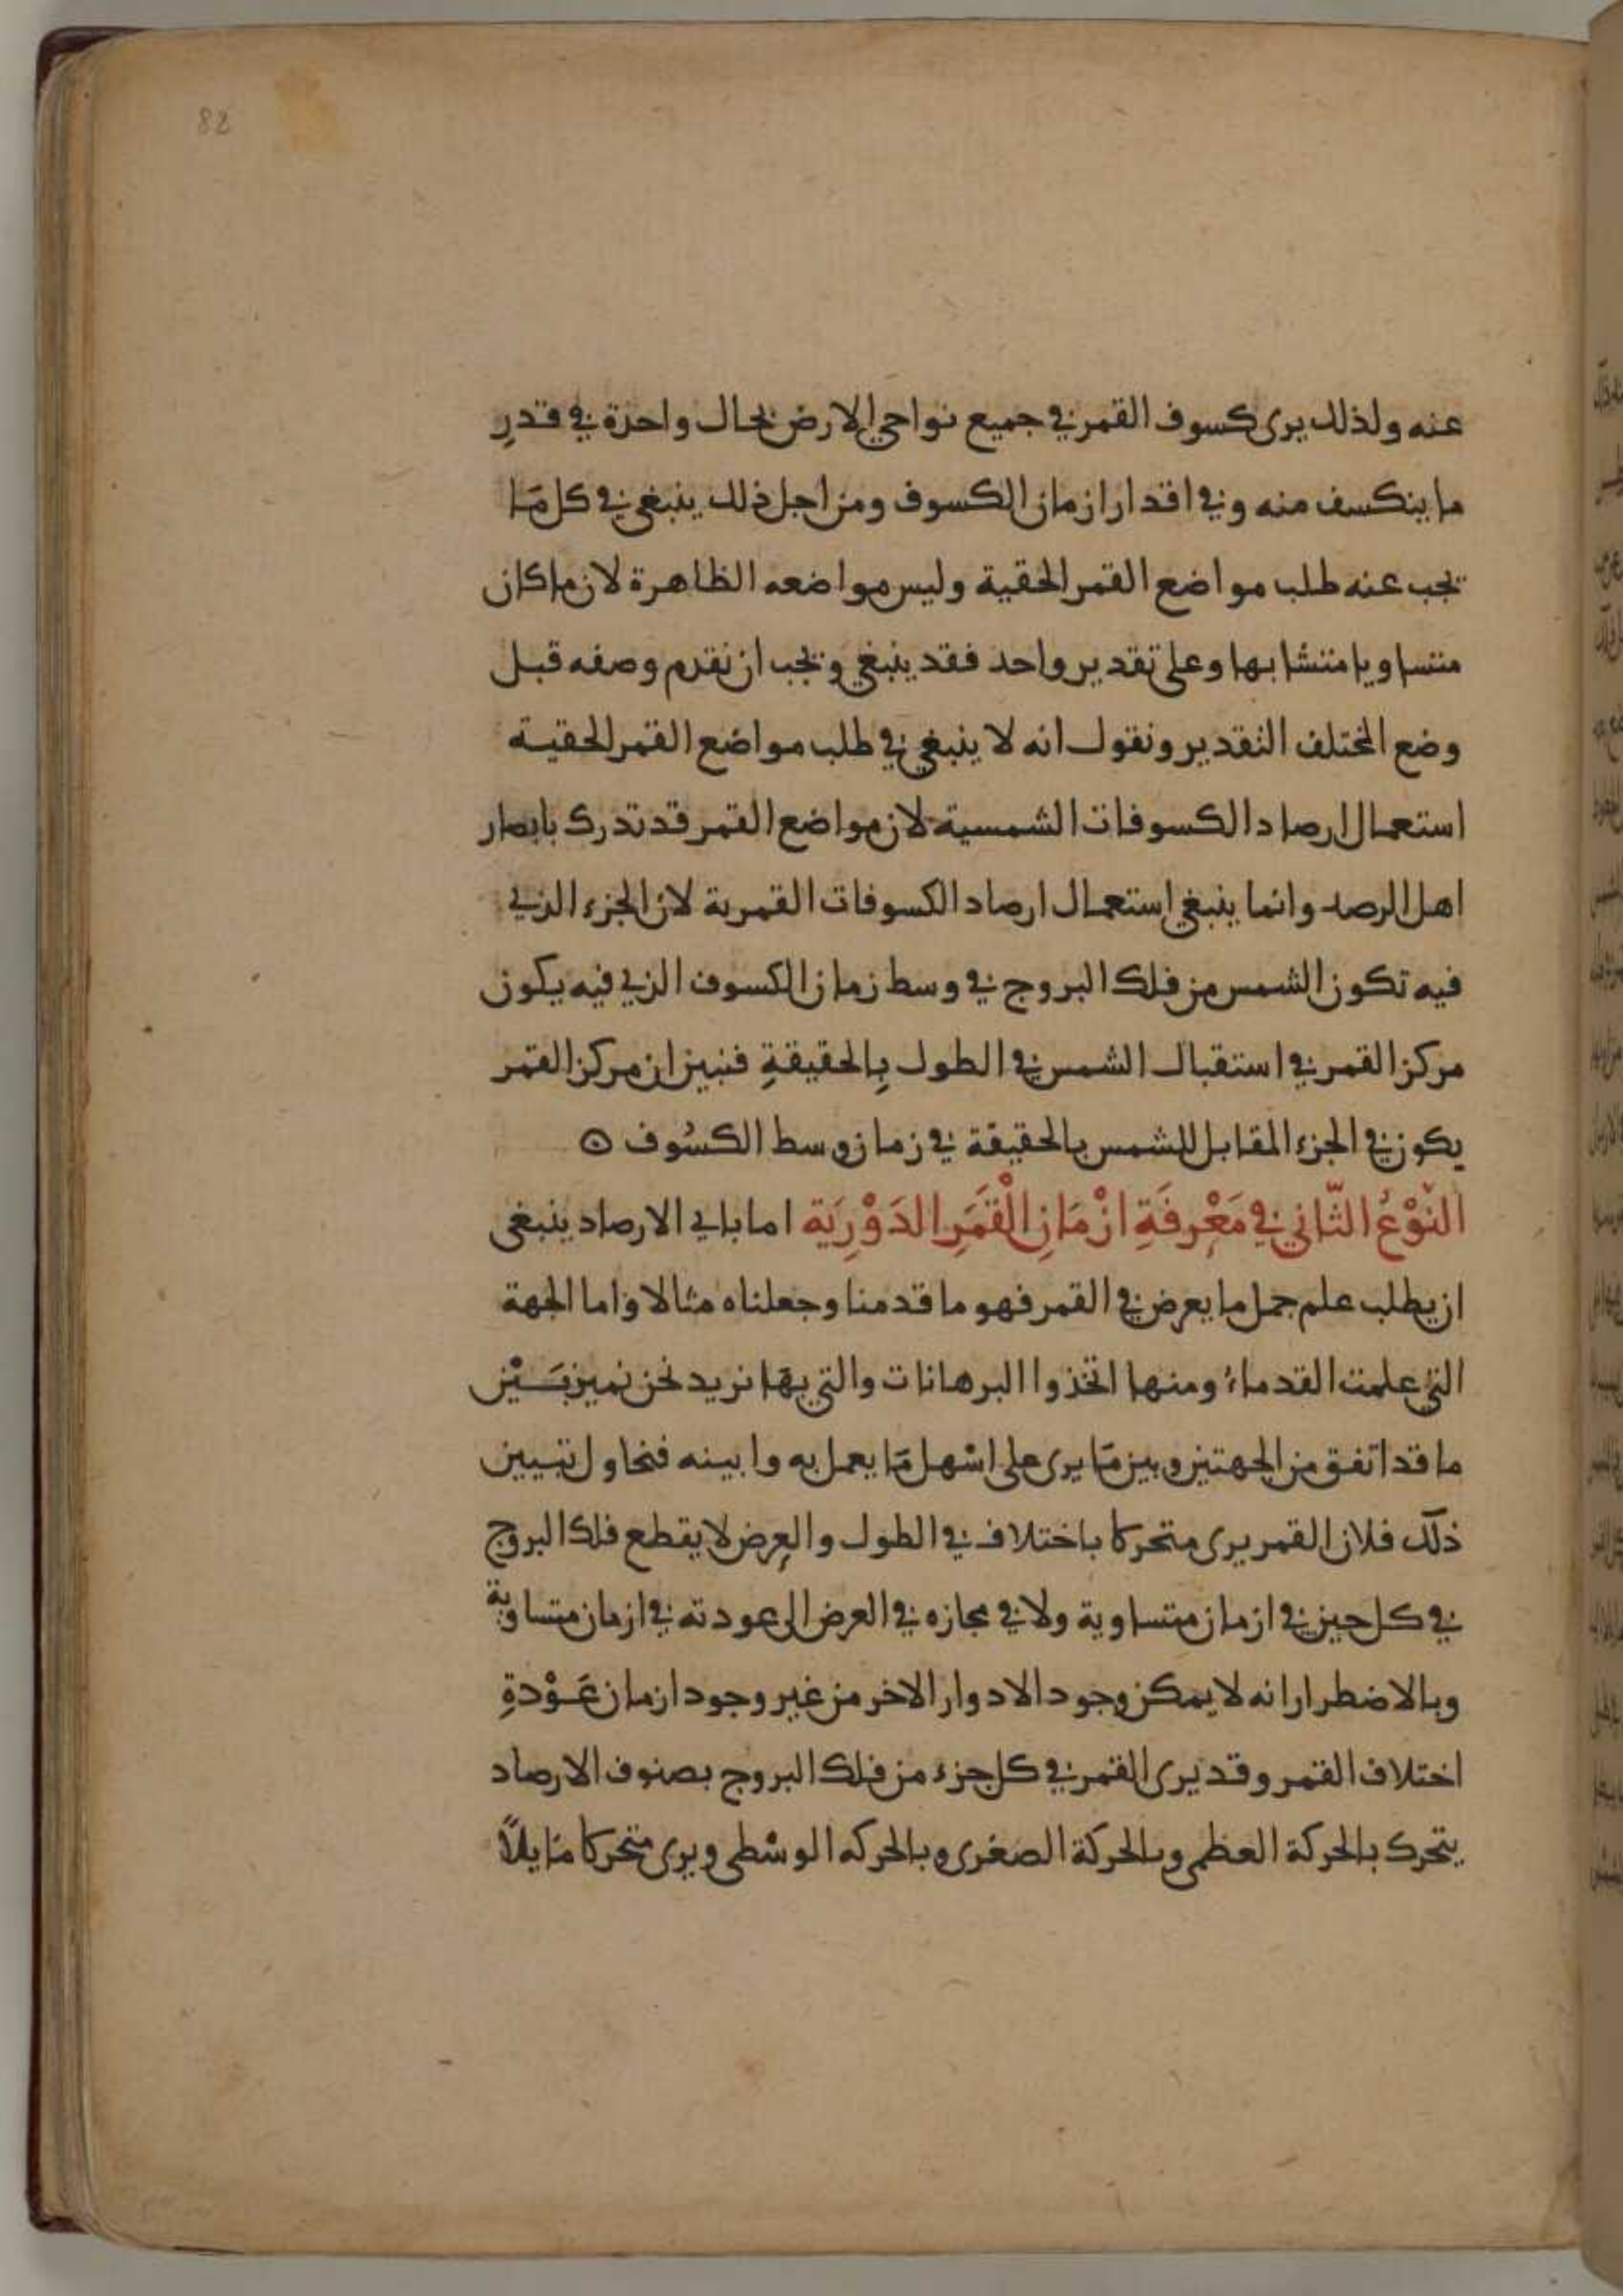 82
عنه ولذلك يرى كسوف القمر في جميع نواحي الارض بحال واحدة في قدرِ
ما ينكسف منه وفي اقدار ازمان الكسوف ومن اجل ذلك ينبغي في كل مَا
يجب عنه طلب مواضع القمر الحقية وليس مواضعه الظاهرة لان ما كان
متساويا متشابها وعلى تقدير واحد فقد ينبغي ويجب ان نقدم وصفه قبل
وضع المختلف التقدير ونقول انه لا ينبغي في طلب مواضع القمر الحقية
استعمال ارصاد الكسوفات الشمسية لان مواضع القمر قد تدرك بابصار
اهل الرصد وانما ينبغي استعمال ارصاد الكسوفات القمرية لان الجزء الذي
فيه تكون الشمس من فلك البروج في وسط زمان الكسوف الذي فيه يكون
مركز القمر في استقبال الشمس في الطول بِالحقيقةِ فنبين ان مركز القمر
يكون في الجزء المقابل للشمس بالحقيقة في زمان وسط الكسُوف ⊙
النَّوْعُ الثَّاني في مَعْرِفَةِ ازْمَانِ الْقَمَرِ الدَوْرِيَة اما باي الارصاد ينبغي
ان يطلب علم جمل ما يعرض في القمر فهو ما قدمنا وجعلناه مثالا واما الجهة
التي علمت القدماءُ ومنها اتخذوا البرهانات والتي بهَا نريد نحن نميز بَيْن
ما قد اتفق من الجهتين وبين مَا يرى على اسْهل مَا يعمل به وابينه فنحاول تبيين
ذلك فلان القمر يرى متحركا باختلاف في الطول والعرض لا يقطع فلك البروج
في كل حين في ازمان متساوية ولا في مجازه في العرض الى عودته في ازمان متساوية
وبالاضطرار انه لا يمكن وجود الادوار الاخر من غير وجود ازمان عَوْدةِ
اختلاف القمر وقد يرى القمر في كل جزء من فلك البروج بصنوف الارصاد
يتحرك بالحركة العظمى وبالحركة الصغرى وبالحركه الوسْطى ويرى متحركا مَايلاً